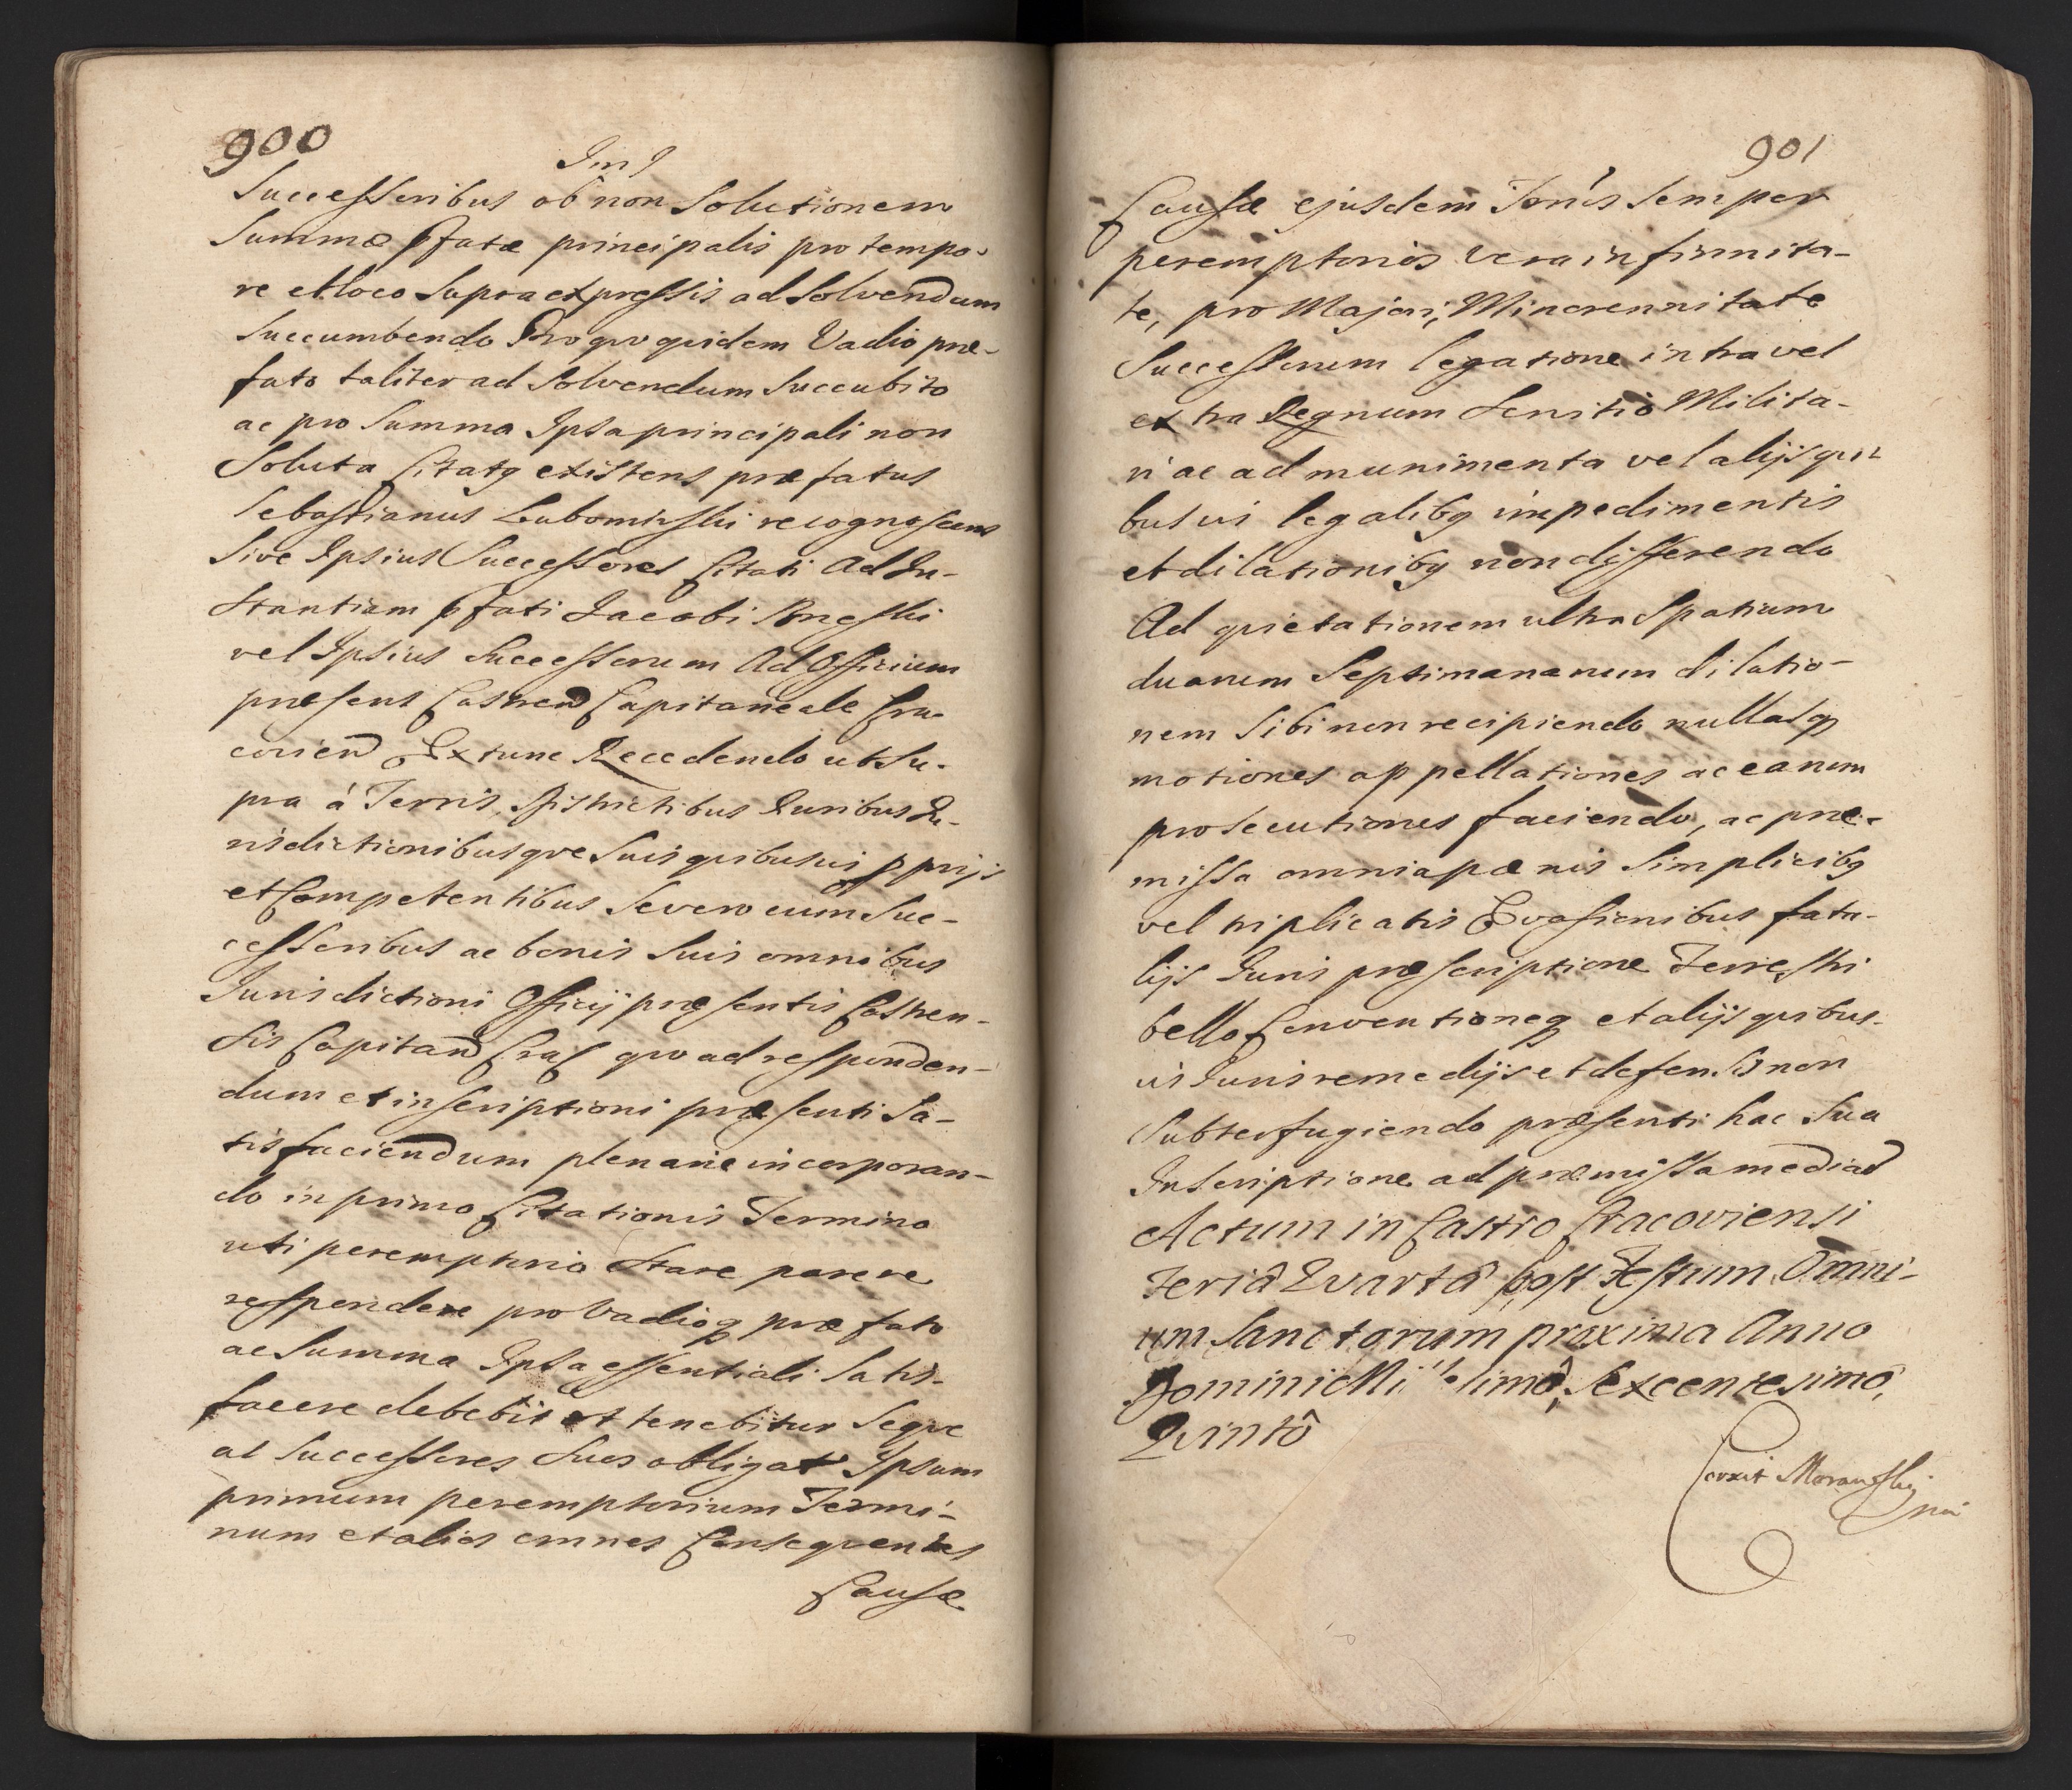 900
Successoribus ob non Solutionem
Summæ pfatæ principalis pro tempo-
re et loco Supra expressis ad Solvendum
Succumbendo Pro quo quidem Vadio præ-
fato taliter ad Solvendum Succubito
ac pro Summa Ipsa principali non
Soluta Citatq existens præfatus
Sebastianus Lubomirski recognoscens
Sive Ipsius Successores Citati Ad In-
stantiam pfati Jacobi
vel Ipsius Successorum Ad Officium
præsens Castren Capitaneale Cra-
covien Ex tunc Recedendo ut Su-
pra á Terris, Districtibus Iuribus Iu-
risdictionibusque Suis quibusvis pprijs
et Competentibus Severo cum Suc-
cessoribus ac bonis Suis omnibus
Jurisdictioni Officij præsentis Castren-
sis Capitan Crac quo ad responden-
dum et inscriptioni præsenti Sa-
tisfaciendum plenarie incorporan-
do in primo Citationis Termino
uti peremptorio Stare parere
respondere pro Vadioq præfato
ac Summa Ipsa essentiali Satis-
facere debebit et tenebitur Seque
ac Successores Suos obligat Ipsum
primum peremptorium Termi-
num et alios omnes Consequentes
Causæ
901
Causæ ejusdem Tenis Semper
peremptorios vera infirmita-
te, pro Majori, Minorennitate
Successorum legatione intra vel
extra Regnum Servitio Milita-
ri ac ad munimenta vel alijs qui-
busvis legalibq impedimentis
et dilationibq non differendo
Ad quietationem ultra Spatium
duarum Septimanarum dilatio-
nem Sibi non recipiendo nullasq
motiones appellationes ac earum
prosecutiones faciendo, ac præ-
missa omnia pænis Simplicibq
vel triplicatis Evasionibus fata-
lijs Iuris præscriptione Terrestri
bello Conventioneq et alijs quibus-
vis Iuris remedijs et defensis non
Subterfugiendo præsenti hac Sua
Inscriptione ad præmissa median
Actum in Castro Cracoviensi
Feriâ Quartâ post Festum Omni-
um Sanctorum proxima Anno
Domini Millesimô, Sexcentesimô,
Quintô
Correxit Morawski
mp